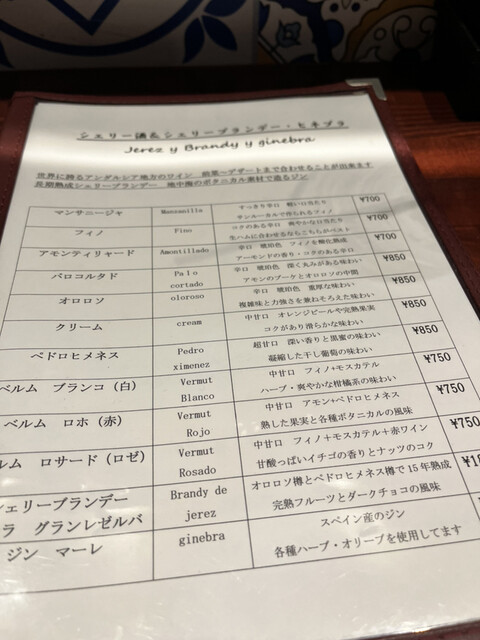 シェリー酒&シェリーブランデー・ヒネブラ
Jerez y Brandy y ginebra
世界に誇るアンダルシア地方のワイン 前菜~デザートまで合わせることが出来ます
長期熟成シェリーブランデー 地中海のボタニカル素材で造るジン
マンサニージャ Manzanilla すっきり辛口 軽い口当たり ¥700
サンルーカルで作られるフィノ
フィノ Fino コクのある辛口 爽やかな口当たり ¥700
生ハムに合わせるならこちらがベスト
アモンティリャード Amontillado 辛口 琥珀色 フィノを酸化熟成 ¥700
アーモンドの香り・コクのある辛口
パロコルタド Palo cortado 辛口 琥珀色 深く丸みがある味わい ¥850
アモンのブーケとオロロソの中間
オロロソ oloroso 辛口 琥珀色 重厚な味わい ¥850
複雑味と力強さを兼ねそろえた味わい
クリーム cream 中甘口 オレンジピールや完熟果実 ¥850
コクがあり滑らかな味わい
ペドロヒメネス Pedro ximenez 超甘口 深い香りと黒蜜の味わい ¥850
凝縮した干し葡萄の味わい
ベルム ブランコ(白) Vermut Blanco 中甘口 フィノ+モスカテル ¥750
ハーブ・爽やかな柑橘系の味わい
ベルム ロホ(赤) Vermut Rojo 中甘口 アモン+ペドロヒメネス ¥750
熟した果実と各種ボタニカルの風味
ルム ロサード(ロゼ) Vermut Rosado 中甘口 フィノ+モスカテル+赤ワイン ¥750
甘酸っぱいイチゴの香りとナッツのコク
シェリーブランデー Brandy de jerez オロロソ樽とペドロヒメネス樽で15年熟成
ラ グランレゼルバ 完熟フルーツとダークチョコの風味
ジン マーレ ginebra スペイン産のジン
各種ハーブ・オリーブを使用してます